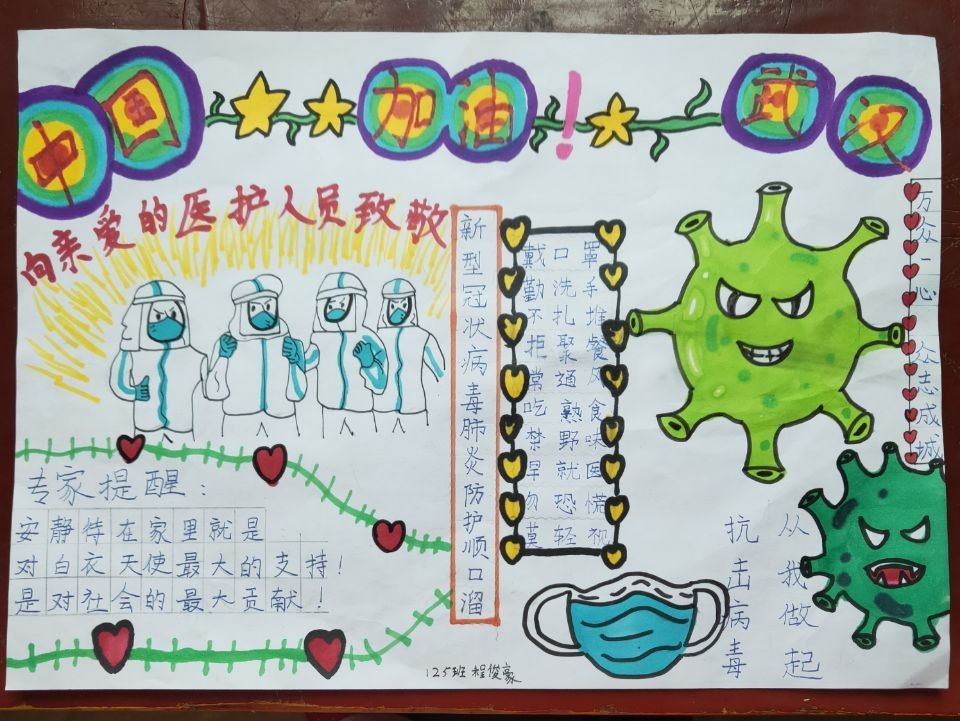 中国 加油！ 武汉
向亲爱的医护人员致敬
专家提醒：
安静待在家里就是
对白衣天使最大的支持！
是对社会的最大贡献！
新型冠状病毒肺炎防护顺口溜
戴口罩
勤洗手
不扎堆
拒聚餐
常通风
吃熟食
禁野味
早就医
勿恐慌
莫轻视
万众一心 众志成城
抗击病毒
从我做起
125班 程俊豪